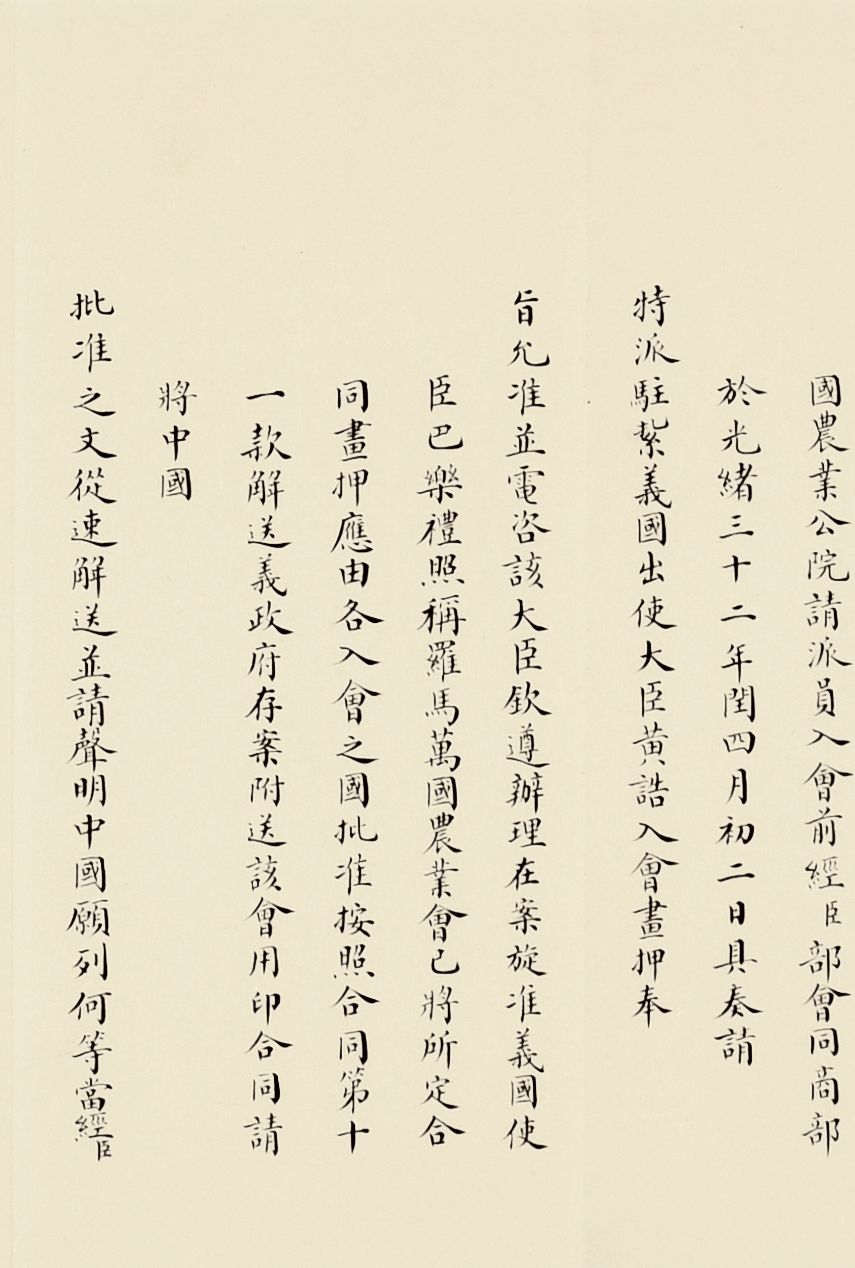 國農業公院請派員入會前經臣部會同啇部
於光緒三十二年閏四月初二日具奏請
特派駐紮義國出使大臣黃誥入會畫押奉
旨允准並電咨該大臣欽遵辦理在案旋准義國使
臣巴樂禮照稱羅馬萬國農業會已將所定合
同畫押應由各入會之國批准按照合同第十
一款解送義政府存案附送該會用印合同請
將中國
批准之文從速解送並請聲明中國願列何等當經臣